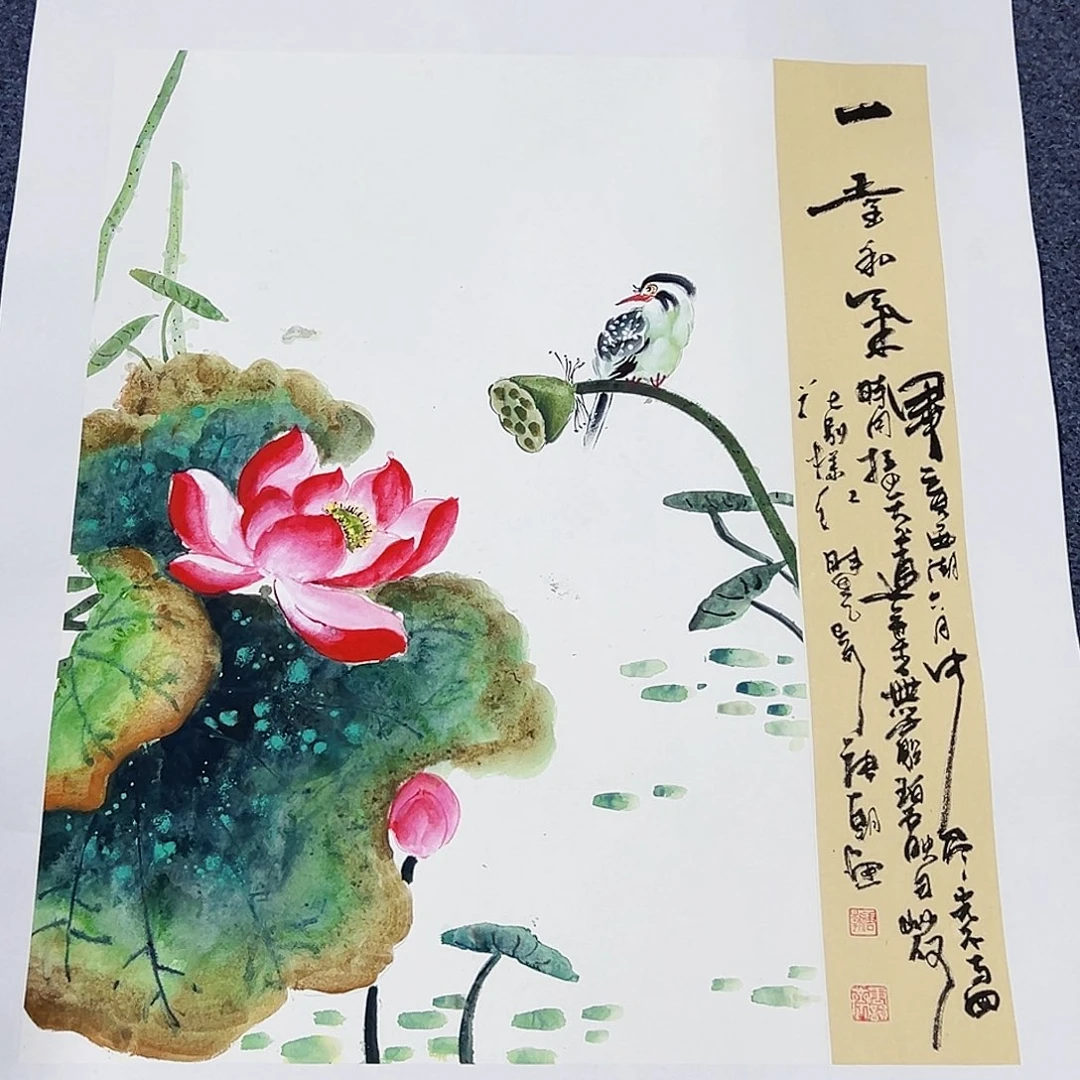 一堂和氣
畢竟西湖六月中風光不与四
時同接天蓮葉無窮碧映日荷
花別樣紅